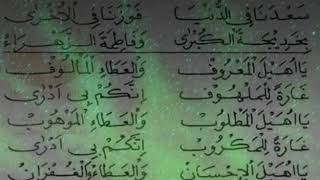 سَعْدُنَا فِي الدُّنْيَا فَوْزُنَا فِي الْأُخْرَى
بِخَدِيْجَةَ الْكُبْرَى وَفَاطِمَةَ الزَّهْرَاءِ
يَا اُهَيْلَ الْمَعْرُوْفِ وَالْعَطَاءِ الْمَأْلُوْفِ
غَارَةً لِلْمَلْهُوْفِ اِنَّكُمْ بِيْ اَدْرَى
يَا اُهَيْلَ الْمَطْلُوْبِ وَالْعَطَاءِ الْمَوْهُوْبِ
غَارَةً لِلْمَكْرُوْبِ اِنَّكُمْ بِيْ اَدْرَى
يَا اُهَيْلَ الْاِحْسَانِ وَالْعَطَاءِ وَالْغُفْرَانِ